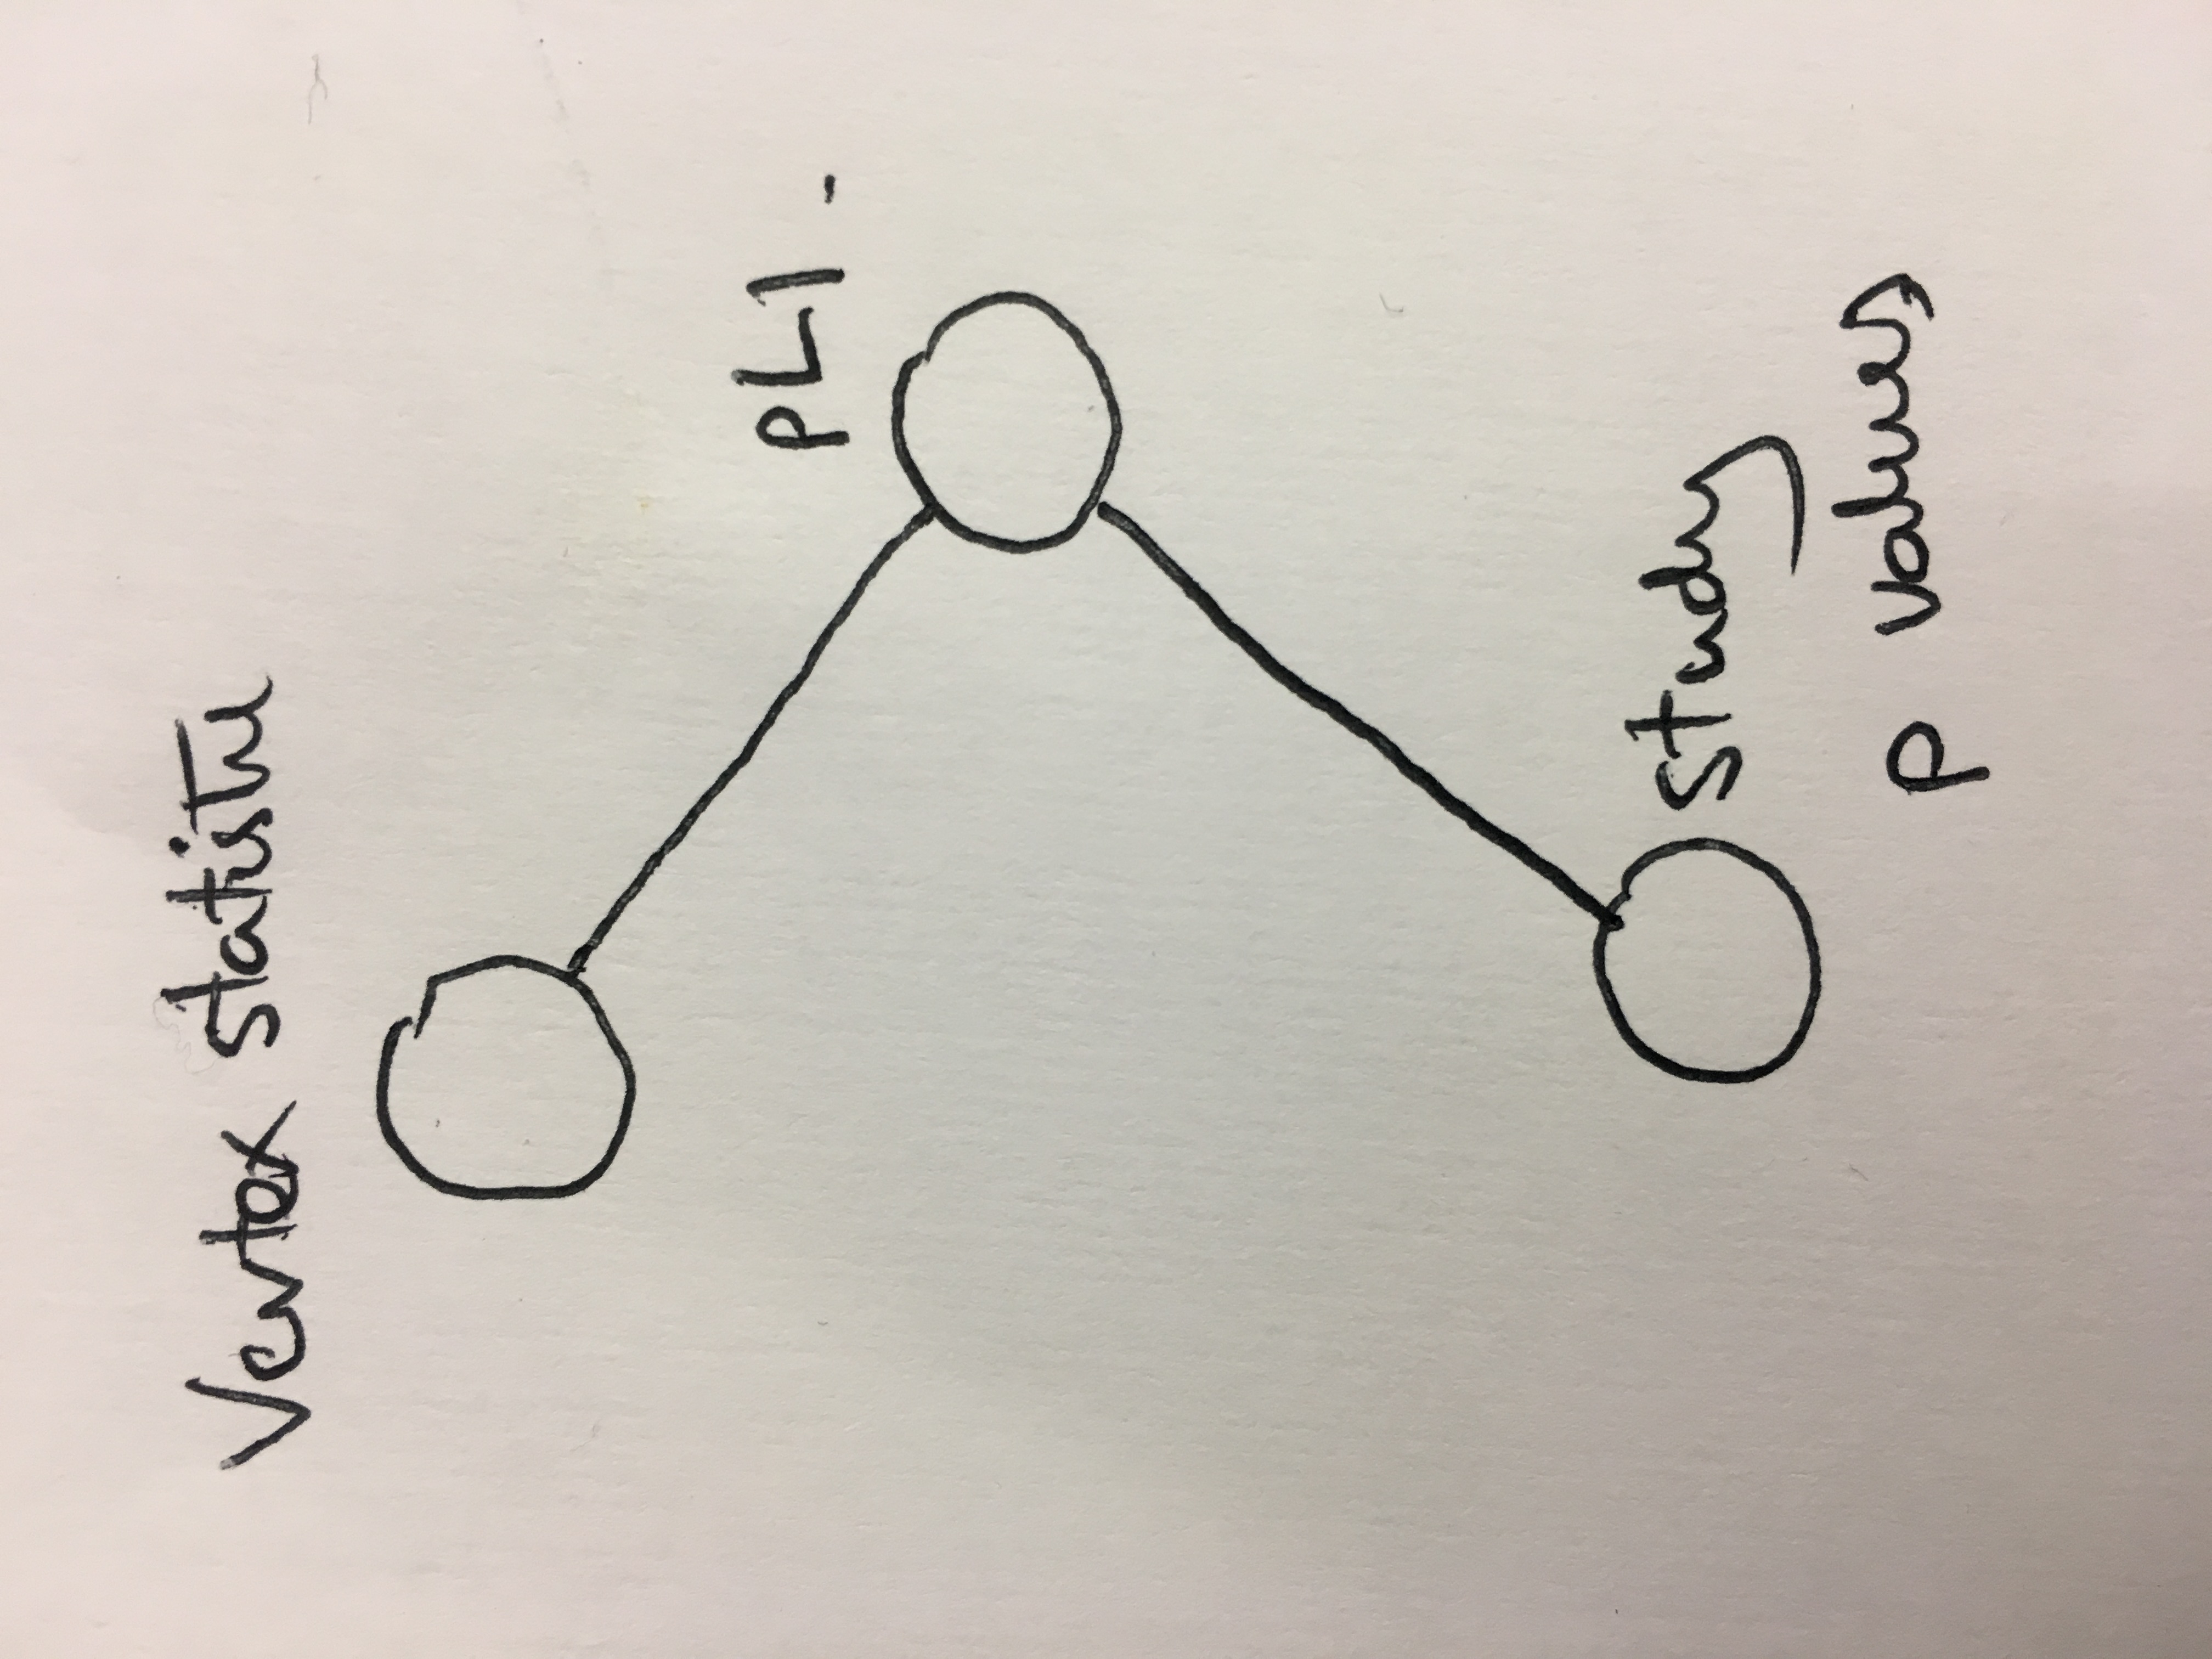 Vertex statistic
pLI -
study
p values